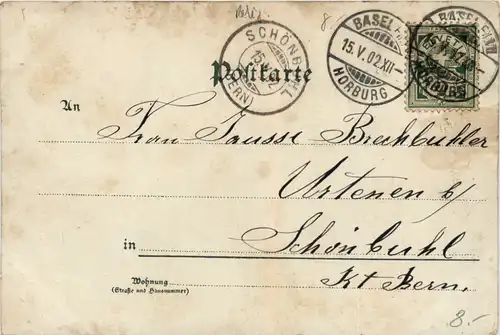 8.
SCHÖNBÜHL
(BERN)
BASEL
15.V.02.XII-
HORBURG
Postkarte
An
Frau Jausse Brechbühler
Urtenen b/
in Schönbühl
Kt Bern.
Wohnung
(Straße und Hausnummer)
8.-